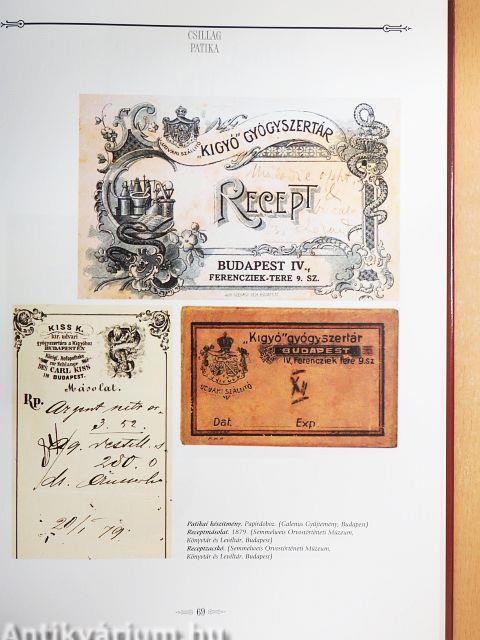 CSILLAG
PATIKA
UDVARI SZÁLLÍTÓ
„KIGYÓ” GYÓGYSZERTÁR
RECEPT
BUDAPEST IV.,
FERENCZIEK-TERE 9. SZ.
KISS K.
kir. udvari
Gyógyszertára a Kígyóhoz
BUDAPESTEN
Königl. Hofapotheke
zur Schlange
DES CARL KISS
IN BUDAPEST.
Másolat.
Rp.
3. 52.
280. 0
20/I 79.
„Kígyó” gyógyszertár
BUDAPEST
IV. Ferencziek tere 9.sz
UDVARI SZÁLLITÓ
Dat. Exp.
Patikai készítmény. Papírdoboz. (Galenus Gyűjtemény, Budapest)
Receptmásolat. 1879. (Semmelweis Orvostörténeti Múzeum,
Könyvtár és Levéltár, Budapest)
Receptzacskó. (Semmelweis Orvostörténeti Múzeum,
Könyvtár és Levéltár, Budapest)
69
Antikvárium.hu